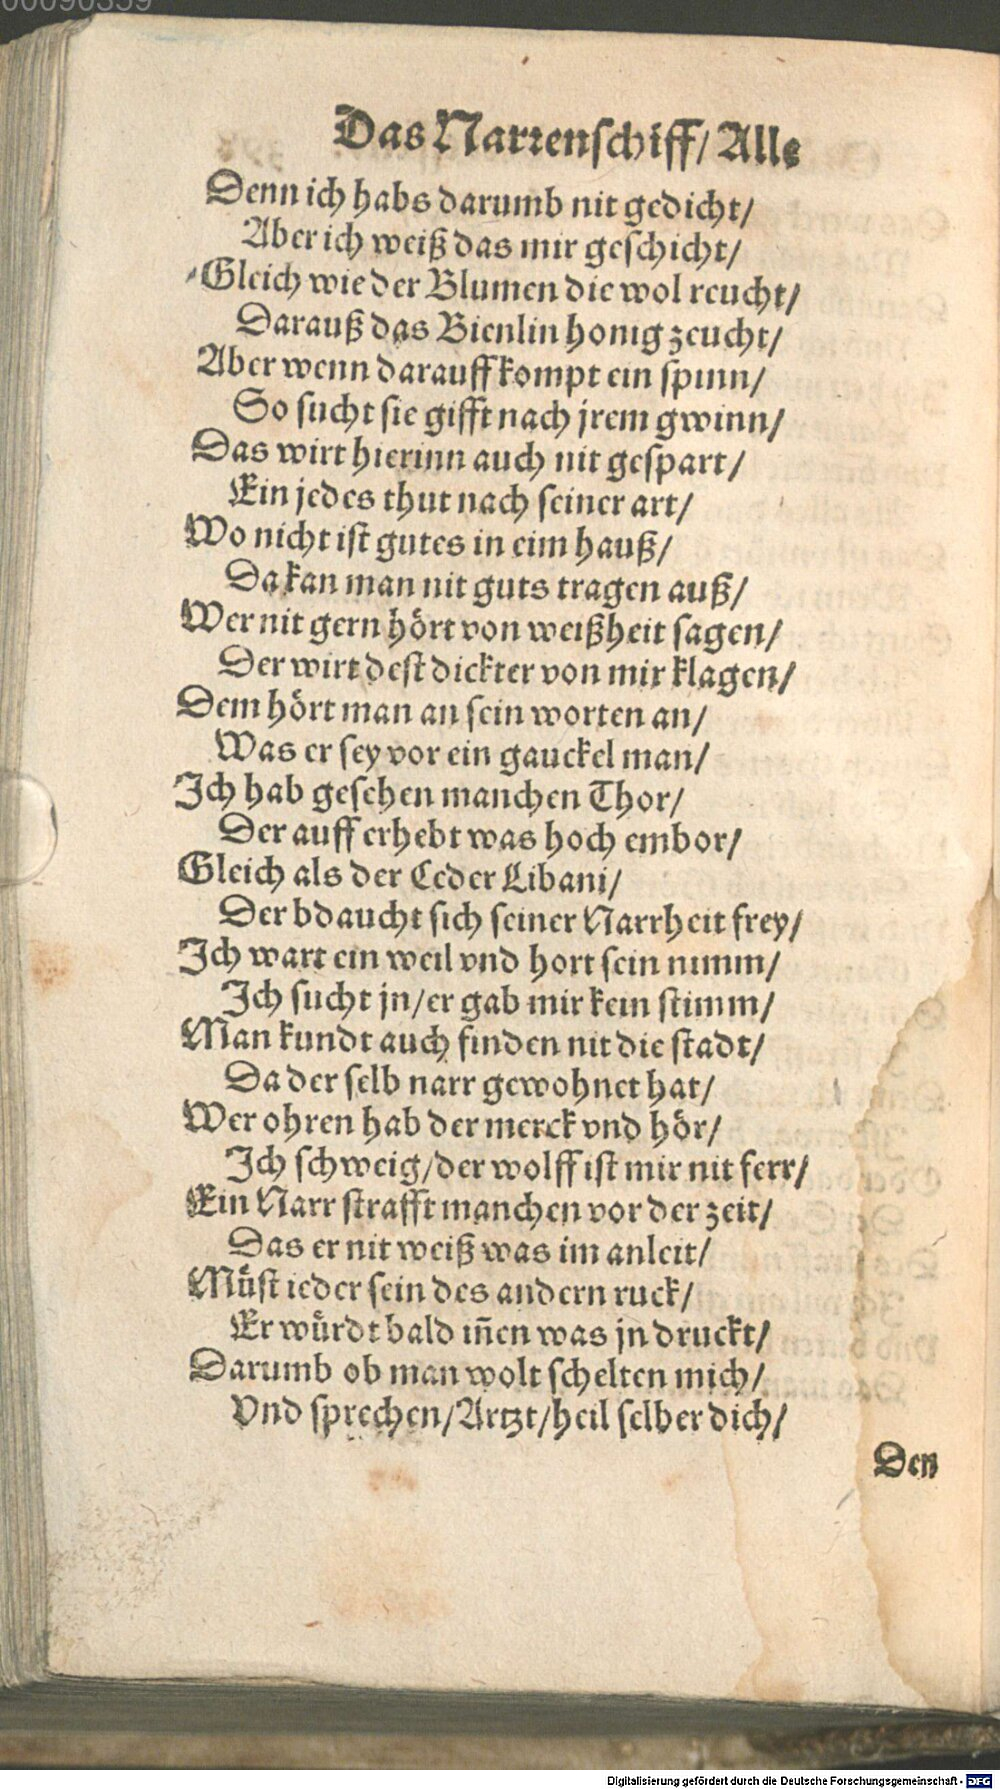 00090359
Das Narrenschiff/ Alle
Denn ich habs darumb nit gedicht/
Aber ich weiß das mir geschicht/
Gleich wie der Blumen die wol reucht/
Darauß das Bienlin honig zeucht/
Aber wenn darauff kompt ein spinn/
So sucht sie gifft nach jrem gwinn/
Das wirt hierinn auch nit gespart/
Ein jedes thut nach seiner art/
Wo nicht ist gutes in eim hauß/
Da kan man nit guts tragen auß/
Wer nit gern hört von weißheit sagen/
Der wirt dest dickter von mir klagen/
Dem hört man an sein worten an/
Was er sey vor ein gauckel man/
Ich hab gesehen manchen Thor/
Der auff erhebt was hoch embor/
Gleich als der Ceder Libani/
Der bdaucht sich seiner Narrheit frey/
Ich wart ein weil vnd hort sein nimm/
Ich sucht jn/er gab mir kein stimm/
Man kundt auch finden nit die stadt/
Da der selb narr gewohnet hat/
Wer ohren hab der merck vnd hör/
Ich schweig/der wolff ist mir nit ferr/
Ein Narr strafft manchen vor der zeit/
Das er nit weiß was im anleit/
Müst ieder sein des andern ruck/
Er würdt bald iñen was jn druckt/
Darumb ob man wolt schelten mich/
Vnd sprechen/Artzt/heil selber dich/
Den
Digitalisierung gefördert durch die Deutsche Forschungsgemeinschaft - DFG